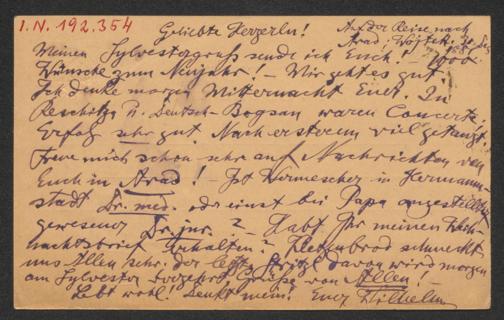 I.N. 192.354
Geliebte Herzerln!
Auf der Reise nach
Arad
Meinen Sylvestergruss sende ich Euch! – 1000
Wünsche zum Neujahr! – Mir geht es gut.
Ich denke morgen Mitternacht Euer. In
Reschitza u. Deutsch-Bogsan waren Concerte.
Erfolg sehr gut. Nach ersterem viel getanzt.
Freue mich schon sehr auf Nachrichten von
Euch in Arad! – Ist Wermescher in Hermann-
stadt Dr. med. oder einst bei Papa angestellt
gewesener Dr. jur. ? – Habt Ihr meinen Weih-
nachtsbrief erhalten? Kletzenbrod schmeckt
uns Allen sehr. der letzte davon wird morgen
am Sylvester verzehrt. Grüße von Allen! –
Lebt wohl! Denkt mein! Euer Wilhelm